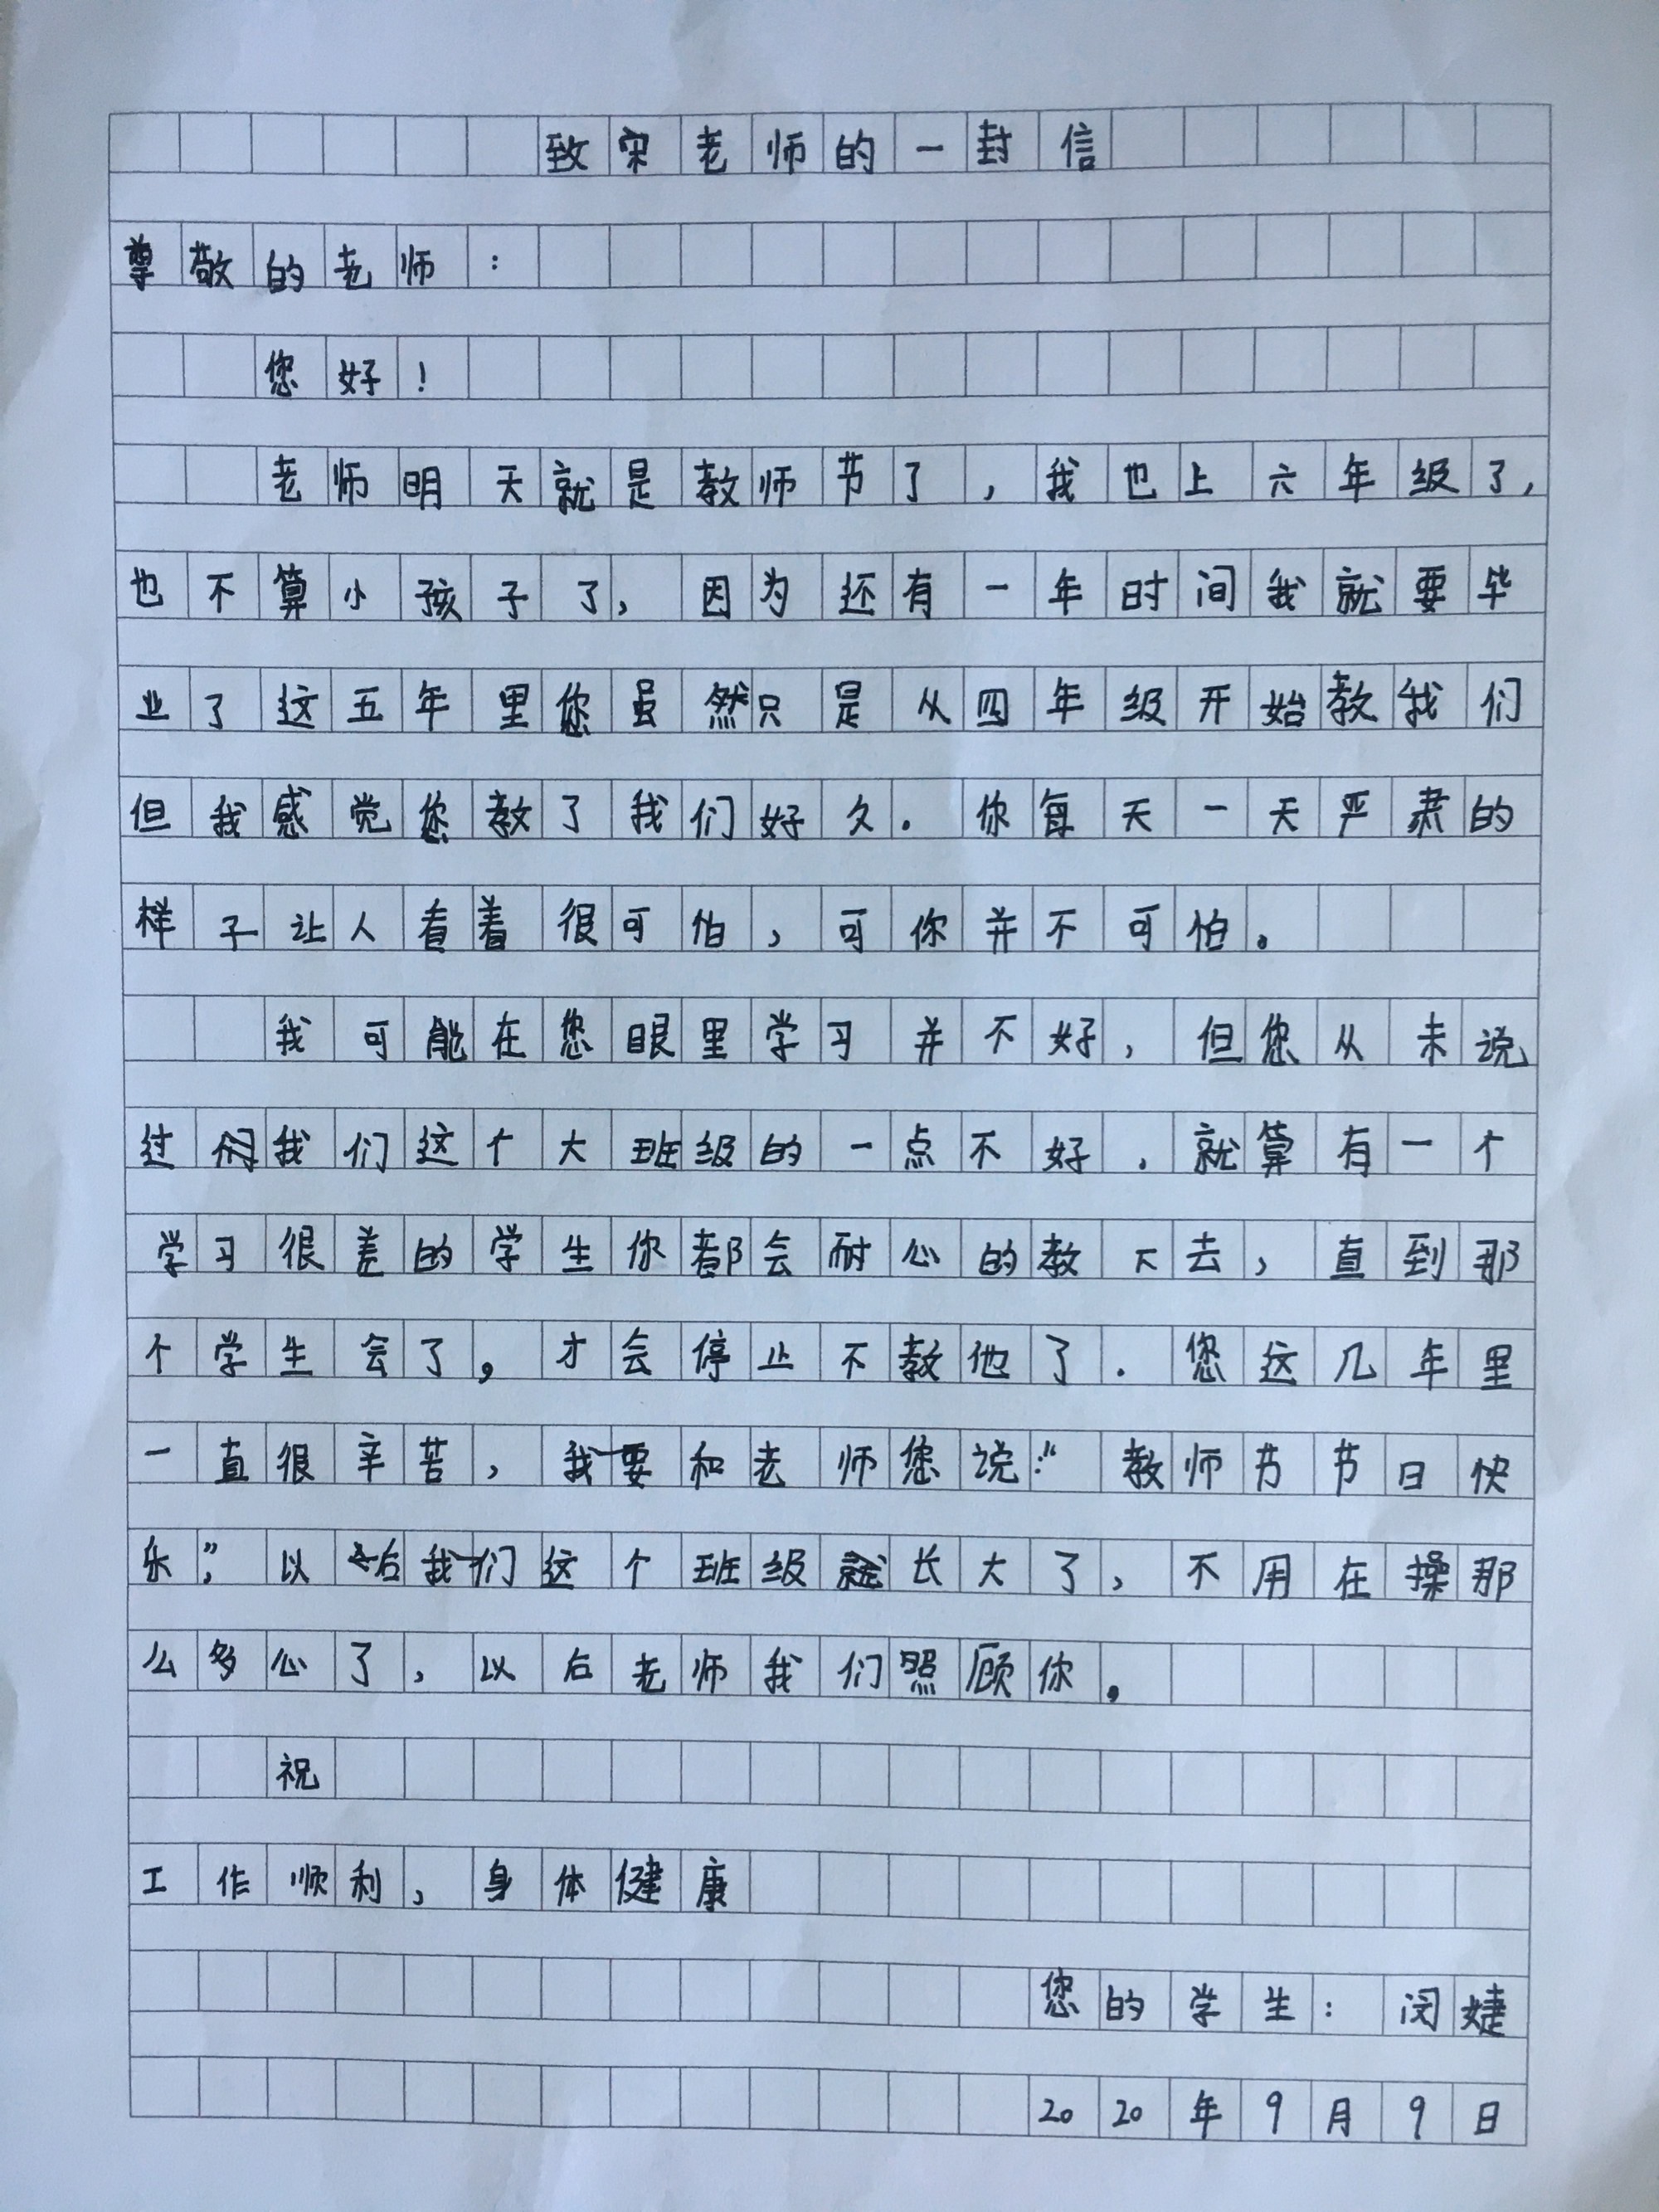 致宋老师的一封信
尊敬的老师：
您好！
老师明天就是教师节了，我也上六年级了，
也不算小孩子了，因为还有一年时间我就要毕
业了这五年里您虽然只是从四年级开始教我们
但我感觉您教了我们好久。你每天一天严肃的
样子让人看着很可怕，可你并不可怕。
我可能在您眼里学习并不好，但您从未说
过我们这个大班级的一点不好。就算有一个
学习很差的学生你都会耐心的教下去，直到那
个学生会了，才会停止不教他了。您这几年里
一直很辛苦，我要和老师您说：“教师节节日快
乐”，以后我们这个班级就长大了，不用在操那
么多心了，以后老师我们照顾你。
祝
工作顺利，身体健康
您的学生：闵婕
2020年9月9日